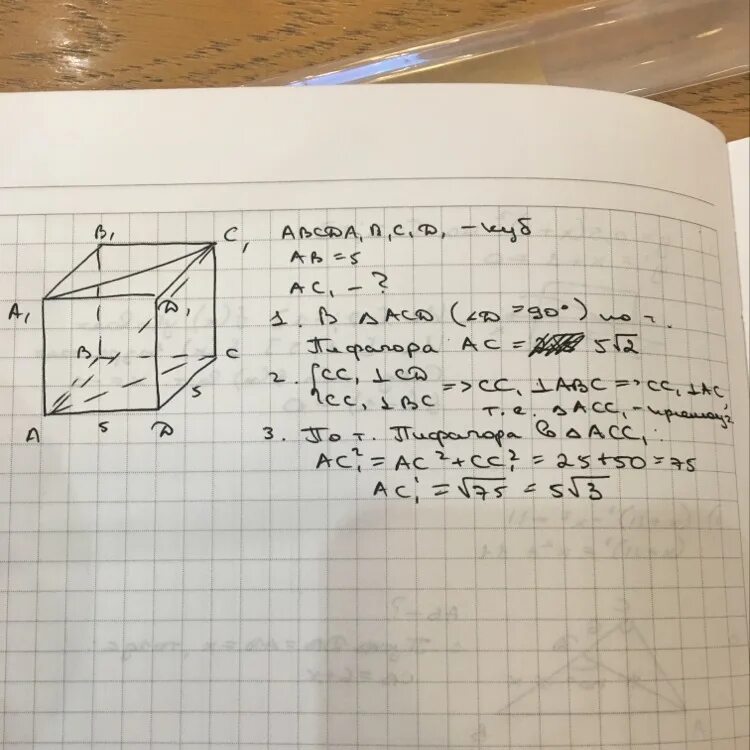 B₁
C₁
A₁
D₁
B
C
5
A
5
D
ABCDA₁B₁C₁D₁ - куб
AB = 5
AC₁ - ?
1. В △ACD (∠D = 90°) по т.
Пифагора AC = 5√2
2. { CC₁ ⊥ CD
CC₁ ⊥ BC => CC₁ ⊥ ABC => CC₁ ⊥ AC,
т.е. △ACC₁ - прямоуг
3. По т. Пифагора в △ACC₁:
AC₁² = AC² + CC₁² = 25 + 50 = 75
AC₁ = √75 = 5√3